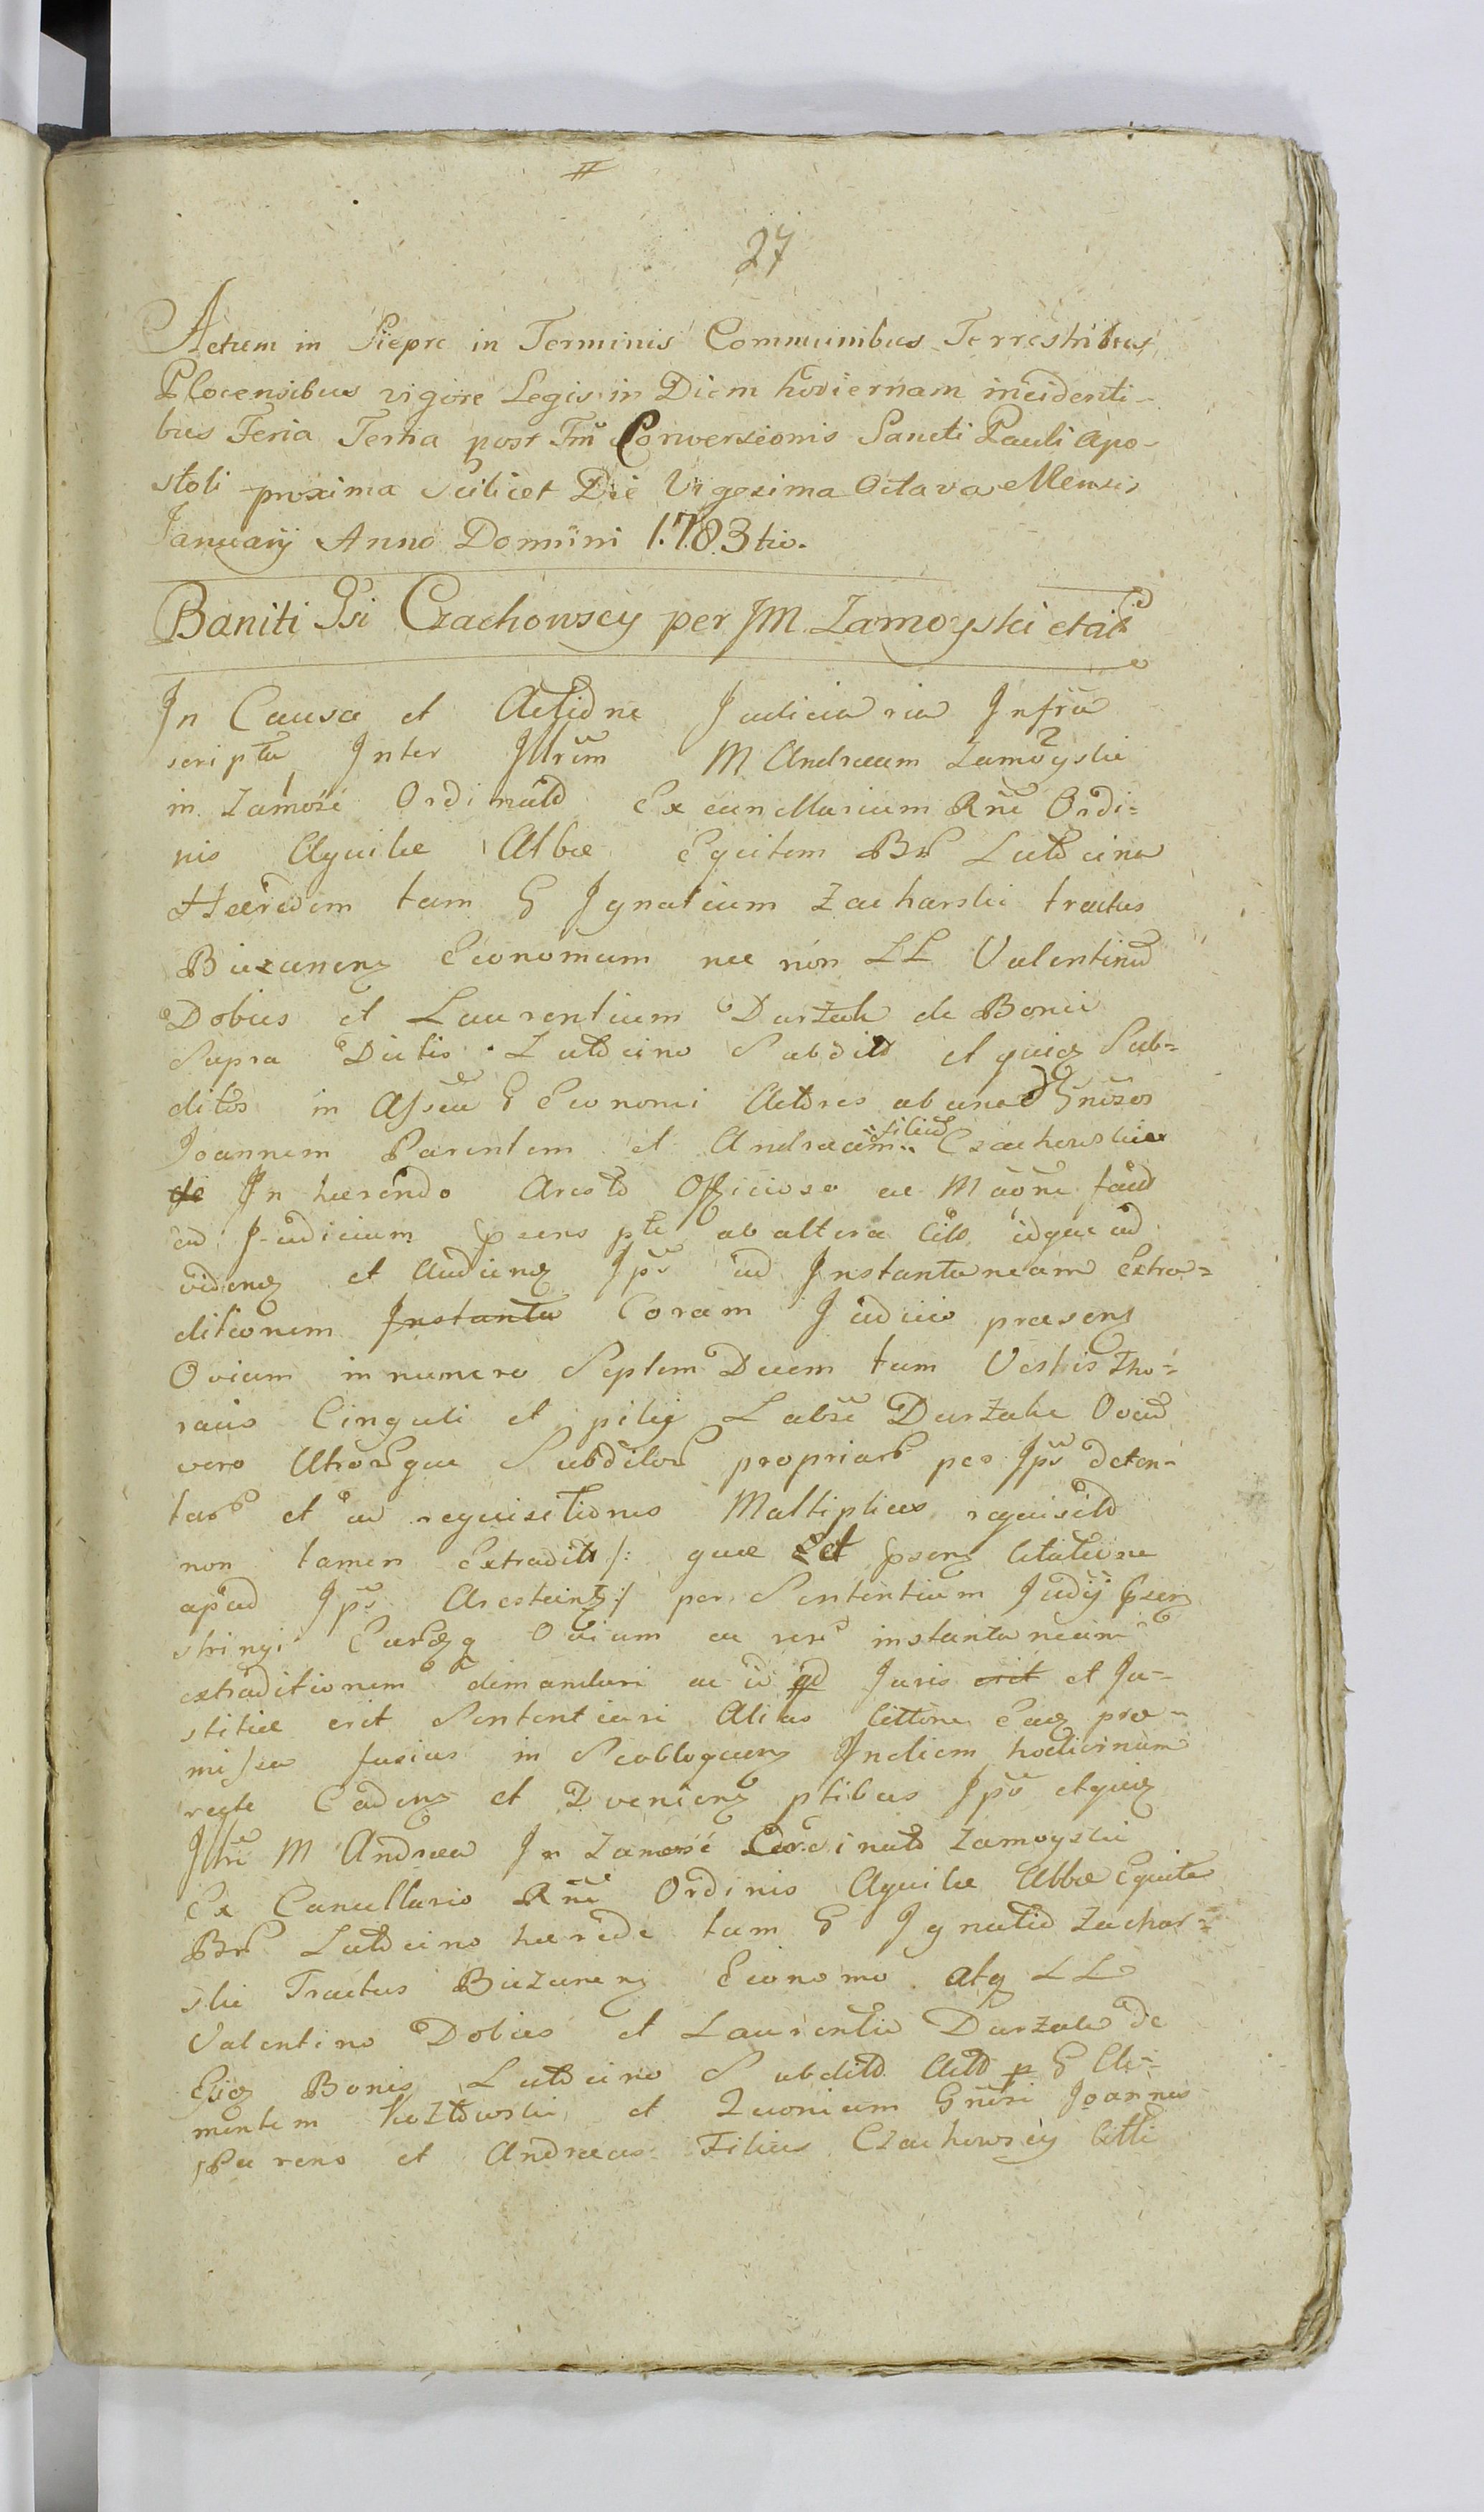 27
Actum in Siepre in Terminis Communibus Terrestribus
Plocensibus vigore Legis in Diem hodiernam incidenti-
bus Feria Tertia post Fm̃ Conversionis Sancti Pauli Apo-
stoli proxima scilicet Die Vigesima Octava Mensis
Januarij Anno Domini 1783tio.
Baniti Gsi Czachowscy per JM Zamoyski et al
In Causa et Actione Judiciaria Infra
scripta Inter Illrem M Andream Zamoyski
in Zamość Ordinato Excancellarium Rni Ordi=
nis Aquilae Albae Equitem Br Lutocino
Haeredem tam G Ignatium Zacharski tractus
Biezunen Economum nec non LL Valentinu
Dobies et Laurentium Durzak de Bonis
Supra Dictis Lutocino Subdito et quos Sub=
ditos in Assa G Economi Actores ab una Gnrosos
Joannem Parentem et Andraeam filiu Czachowskie
In haerendo Aresto Officioso ac Maone facto
ad Judicium psens pte ab altera Cito idque ad
videng et Audieng Ips ad Instantaneam Extra=
ditionem Instanta Coram Judicio praeseng
Ovium in numero Septem Decem tum Vestis Tho=
racis Cinguli et pilei Labsi Durzak Oviu
vero Utrorque Subditor propriar per Ips deten-
tar et ad requisitiones Multiplices requisito
non tamen Extradito /: quae et pseng Citatione
apud Ips Arestant :/ per Sententiam Judij pseng
stringi Earq Ovium ac rer instantaneam
extraditionem demandari ac id qd Juris erit et Ju-
stitiae erit Sententiari Alias Cittone Eag prae-
missa fusius in Se obloquen In diem hodiernum
recte Cadeng et Dvenieng ptibus Ips et quig
Illri M Andrea In Zamość Ordinato Zamoyski
Ex Cancellario Rni Ordinis Aquilae Albae Equite
Br Lutocino haerede tam G Ignatio Zachar=
ski Tractus Biezuneng Economo atq LL
Valentino Dobies et Laurentio Durzak de
Eisg Bonis Lutocino Subdito Acto p G Cle-
mentem Kozłowski et Gnrsi Joannes
Parens et Andreas Filius Czachowscy Citti